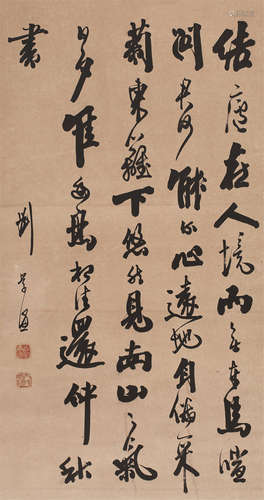 結廬在人境而無車馬喧
問君何能爾心遠地自偏采
菊東籬下悠然見南山々氣
日夕佳飛鳥相與還
書
劉